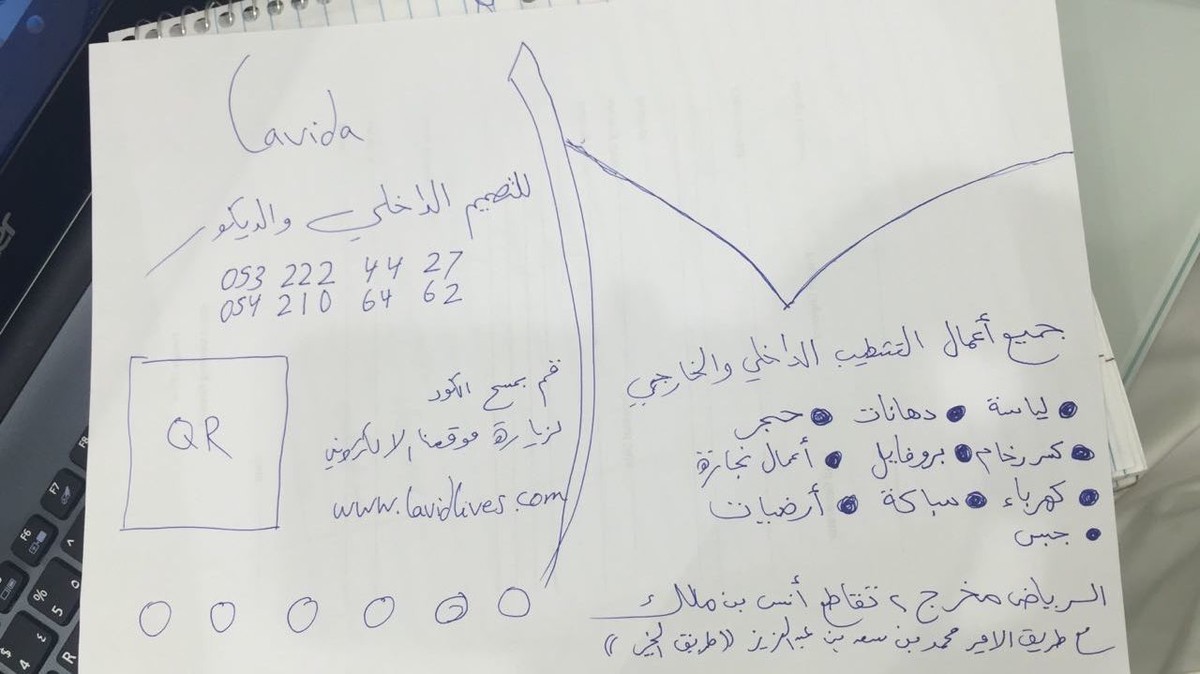 Lavida
للتصميم الداخلي والديكور
053 222 44 27
054 210 64 62
QR
قم بمسح الكود
لزيارة موقعنا الالكتروني
www.lavidlives.com
جميع أعمال التشطيب الداخلي والخارجي
● لياسة ● دهانات ● حجر
● كسر رخام ● بروفايل ● أعمال نجارة
● كهرباء ● سباكة ● أرضيات
● جبس
الرياض مخرج ٢ تقاطع أنس بن مالك
مع طريق الامير محمد بن سعد بن عبدالعزيز ((طريق الخير))
F7
F6
%
5
R
$
4